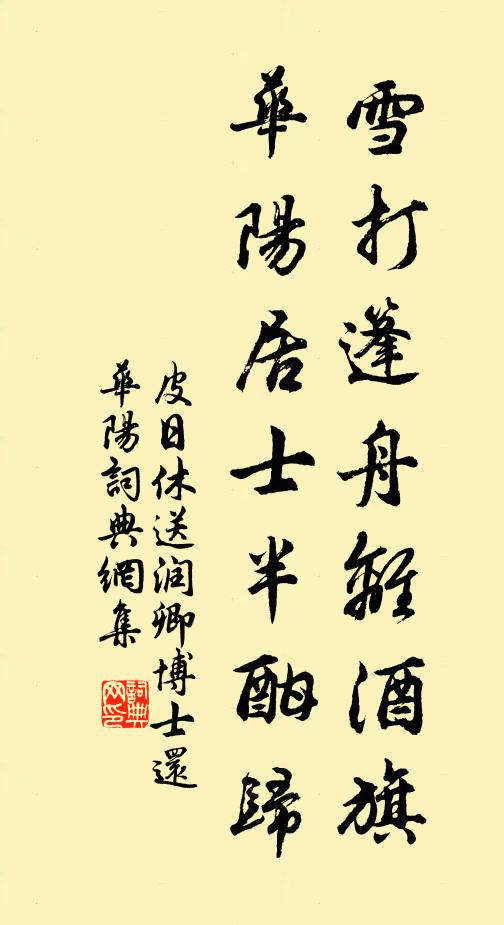 雪打篷舟離酒旗
華陽居士半酣歸
皮日休送润卿博士還
華陽詞典網集
詞典网印